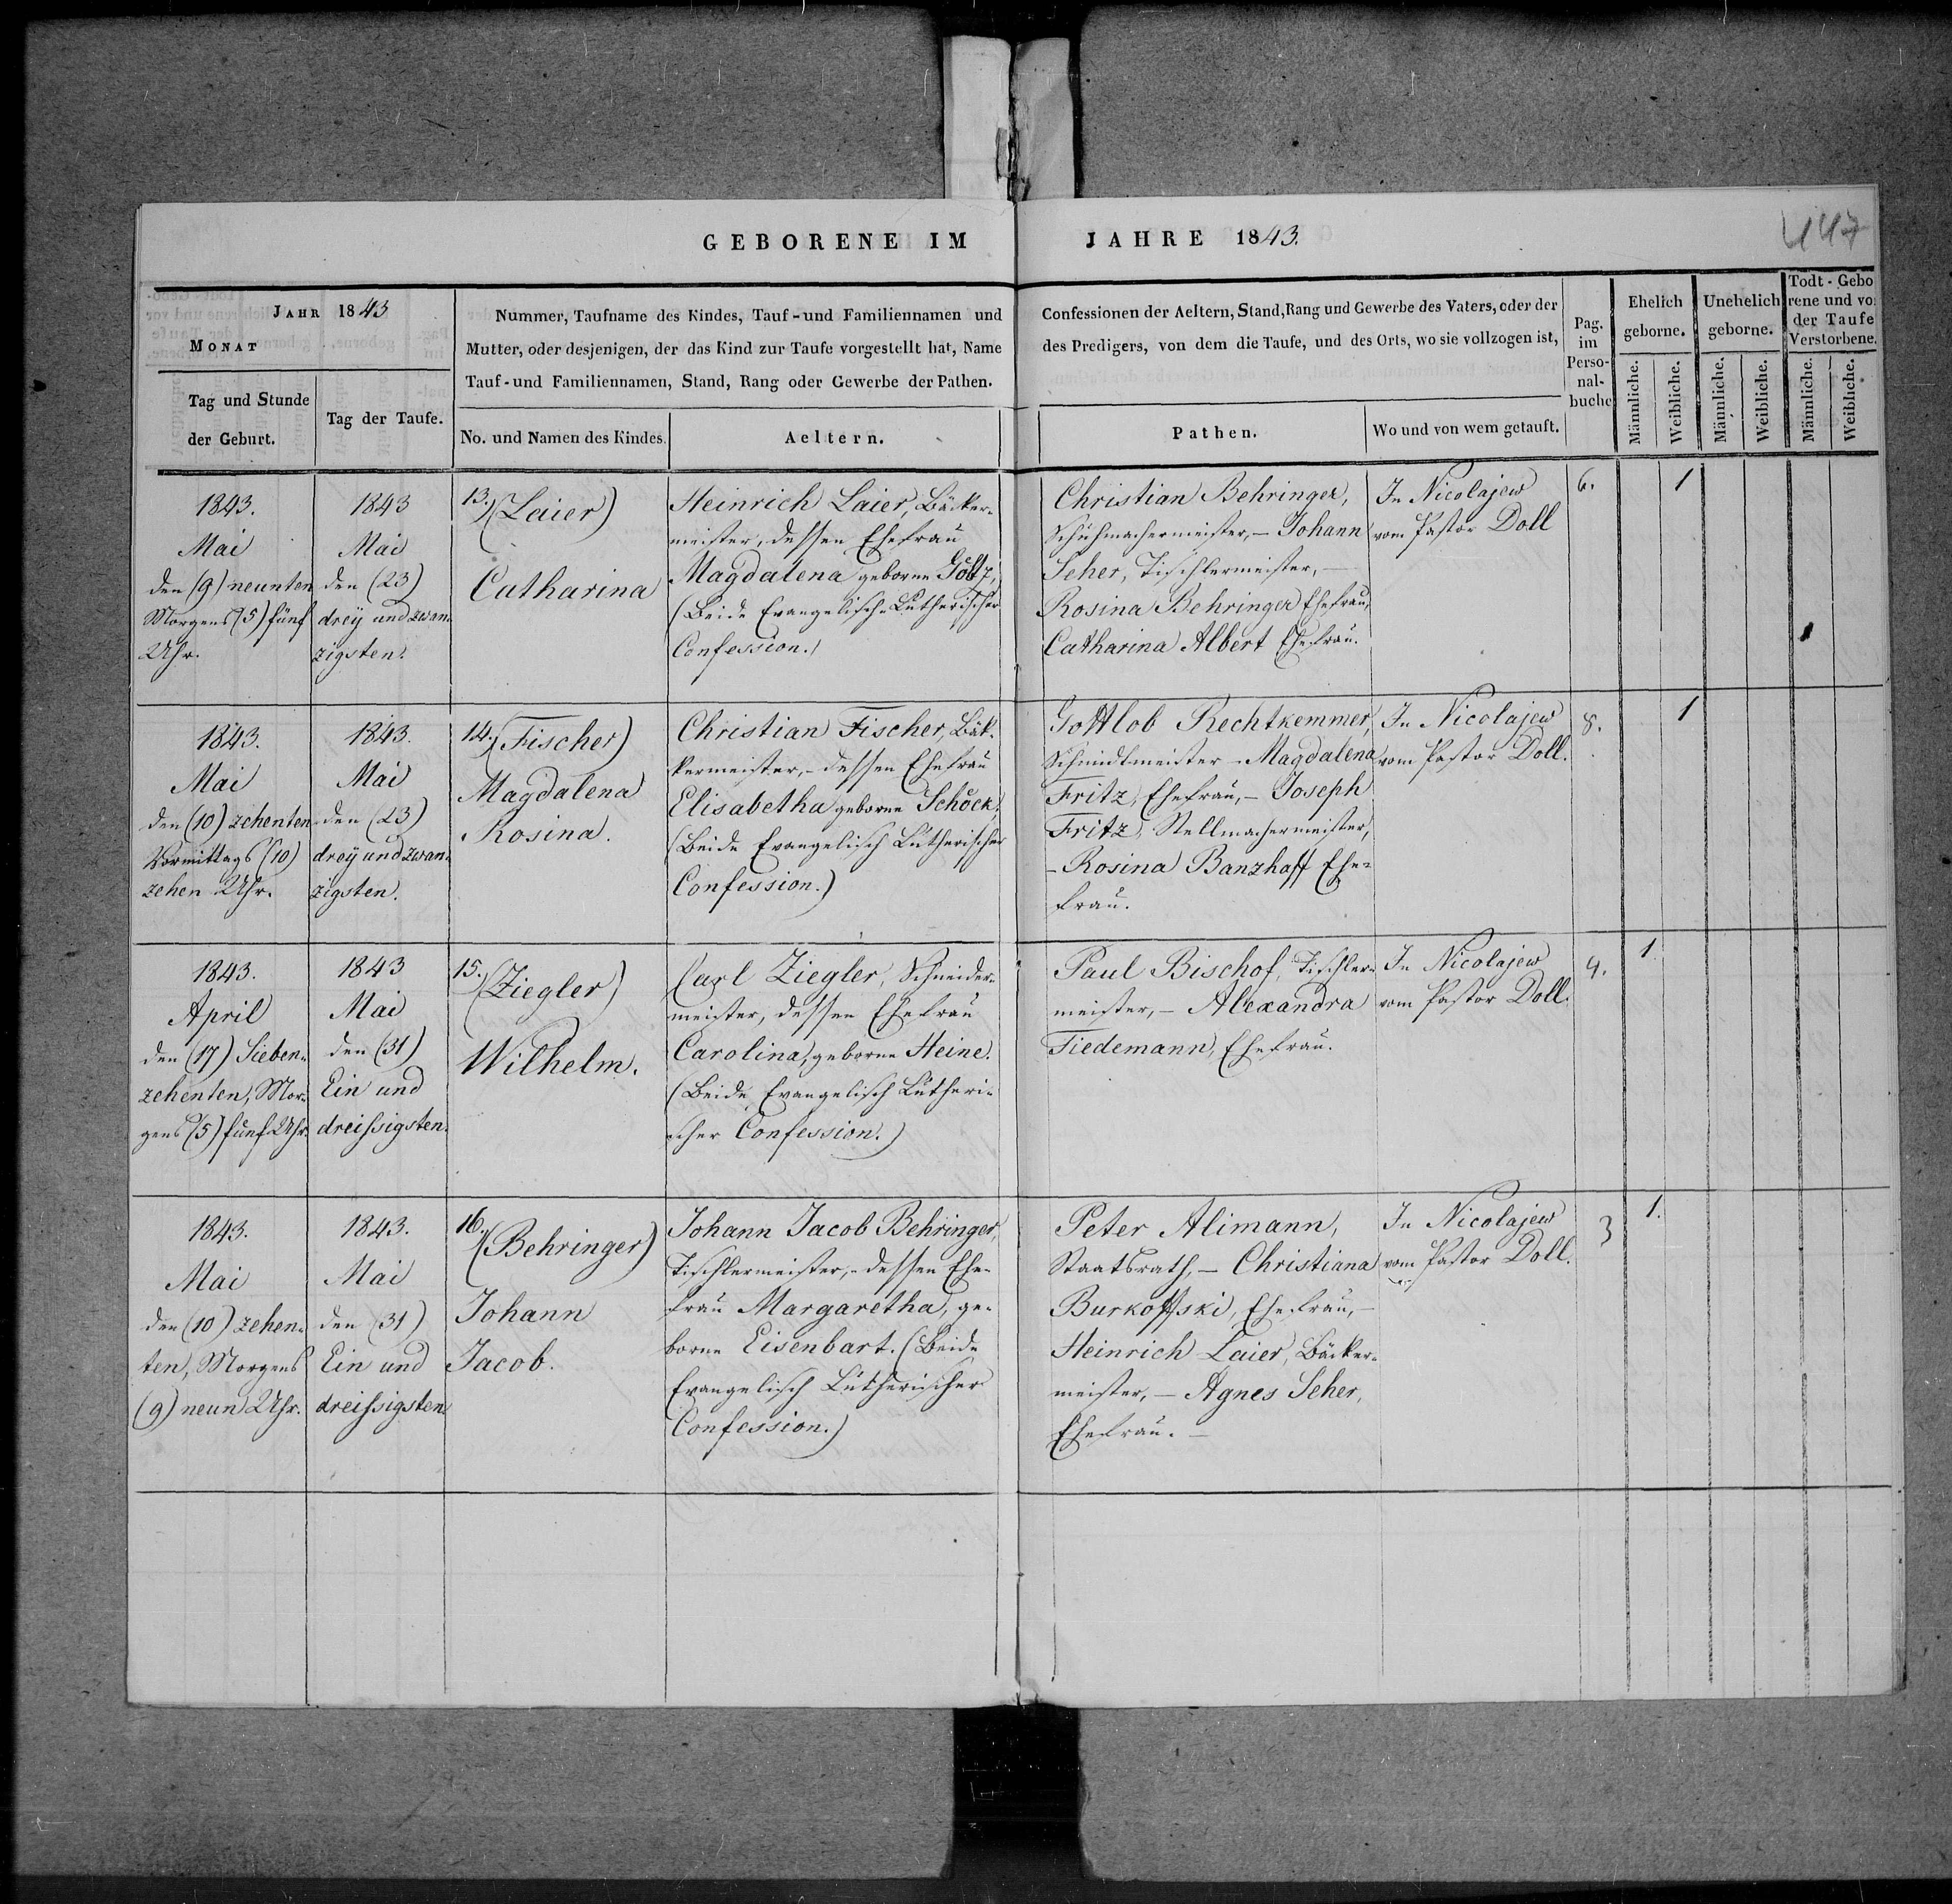 GEBORENE IM JAHRE 1843.
447
JAHR 1843
MONAT
Tag und Stunde
der Geburt.
Tag der Taufe.
Nummer, Taufname des Kindes, Tauf-und Familiennamen und
Mutter, oder desjenigen, der das Kind zur Taufe vorgestellt hat, Name
Tauf-und Familiennamen, Stand, Rang oder Gewerbe der Pathen.
No. und Namen des Kindes.
Aeltern.
Confessionen der Aeltern, Stand, Rang und Gewerbe des Vaters, oder der
des Predigers, von dem die Taufe, und des Orts, wo sie vollzogen ist,
Pathen.
Wo und von wem getauft.
Pag.
im
Perso-
nal-
buche
Ehelich
geborne.
Männliche.
Weibliche.
Unehelich
geborne.
Männliche.
Weibliche.
Todt-Gebo
rene und vo
der Taufe
Verstorbene.
Männliche.
Weibliche.
1843.
Mai
den (9) neunten
Morgens (5) fünf
Uhr.
1843
Mai
den (23)
dreÿ und zwan-
zigsten.
13.) (Laier)
Catharina
Heinrich Laier, Bäcker-
meister, dessen Ehefrau
Magdalena geborne Göltz,
(Beide Evangelisch-Lutherischer
Confession.)
Christian Behringer,
Schuhmachermeister, – Johann
Seher, Tischlermeister, –
Rosina Behringer Ehefrau,
Catharina Albert Ehefrau.
In Nicolajew
vom Pastor Doll
6.
1
1843.
Mai
den (10) zehenten
Vormittags (10)
zehen Uhr.
1843.
Mai
den (23)
dreÿ und zwan-
zigsten.
14.) (Fischer)
Magdalena
Rosina.
Christian Fischer, Bäk-
kermeister, – dessen Ehefrau
Elisabetha geborne Schöck,
(Beide Evangelisch Lutherischer
Confession.)
Gottlob Rechtkemmer,
Schmidtmeister – Magdalena
Fritz, Ehefrau, – Joseph
Fritz, Stellmachermeister,
– Rosina Banzhaff Ehe-
frau.
In Nicolajew
vom Pastor Doll.
8.
1
1843.
April
den (17) Sieben-
zehenten, Mor-
gens (5) fünf Uhr.
1843
Mai
den (31)
Ein und
dreissigsten.
15.) (Ziegler)
Wilhelm.
Carl Ziegler, Schneider-
meister, dessen Ehefrau
Carolina, geborne Heine.
(Beide Evangelisch Lutheri-
scher Confession.)
Paul Bischof, Tischler-
meister, – Alexandra
Tiedemann, Ehefrau.
In Nicolajew
vom Pastor Doll.
4.
1.
1843.
Mai
den (10) zehen-
ten, Morgens
(9) neun Uhr.
1843.
Mai
den (31)
Ein und
dreissigsten
16.) (Behringer)
Johann
Jacob.
Johann Jacob Behringer,
Tischlermeister, – dessen Ehe-
frau Margaretha, ge-
borne Eisenbart. (Beide
Evangelisch Lutherischer
Confession.)
Peter Alimann,
Staatsrath, – Christiana
Burkoffski, Ehefrau, –
Heinrich Laier, Bäcker-
meister, – Agnes Seher,
Ehefrau. –
In Nicolajew
vom Pastor Doll.
3
1.